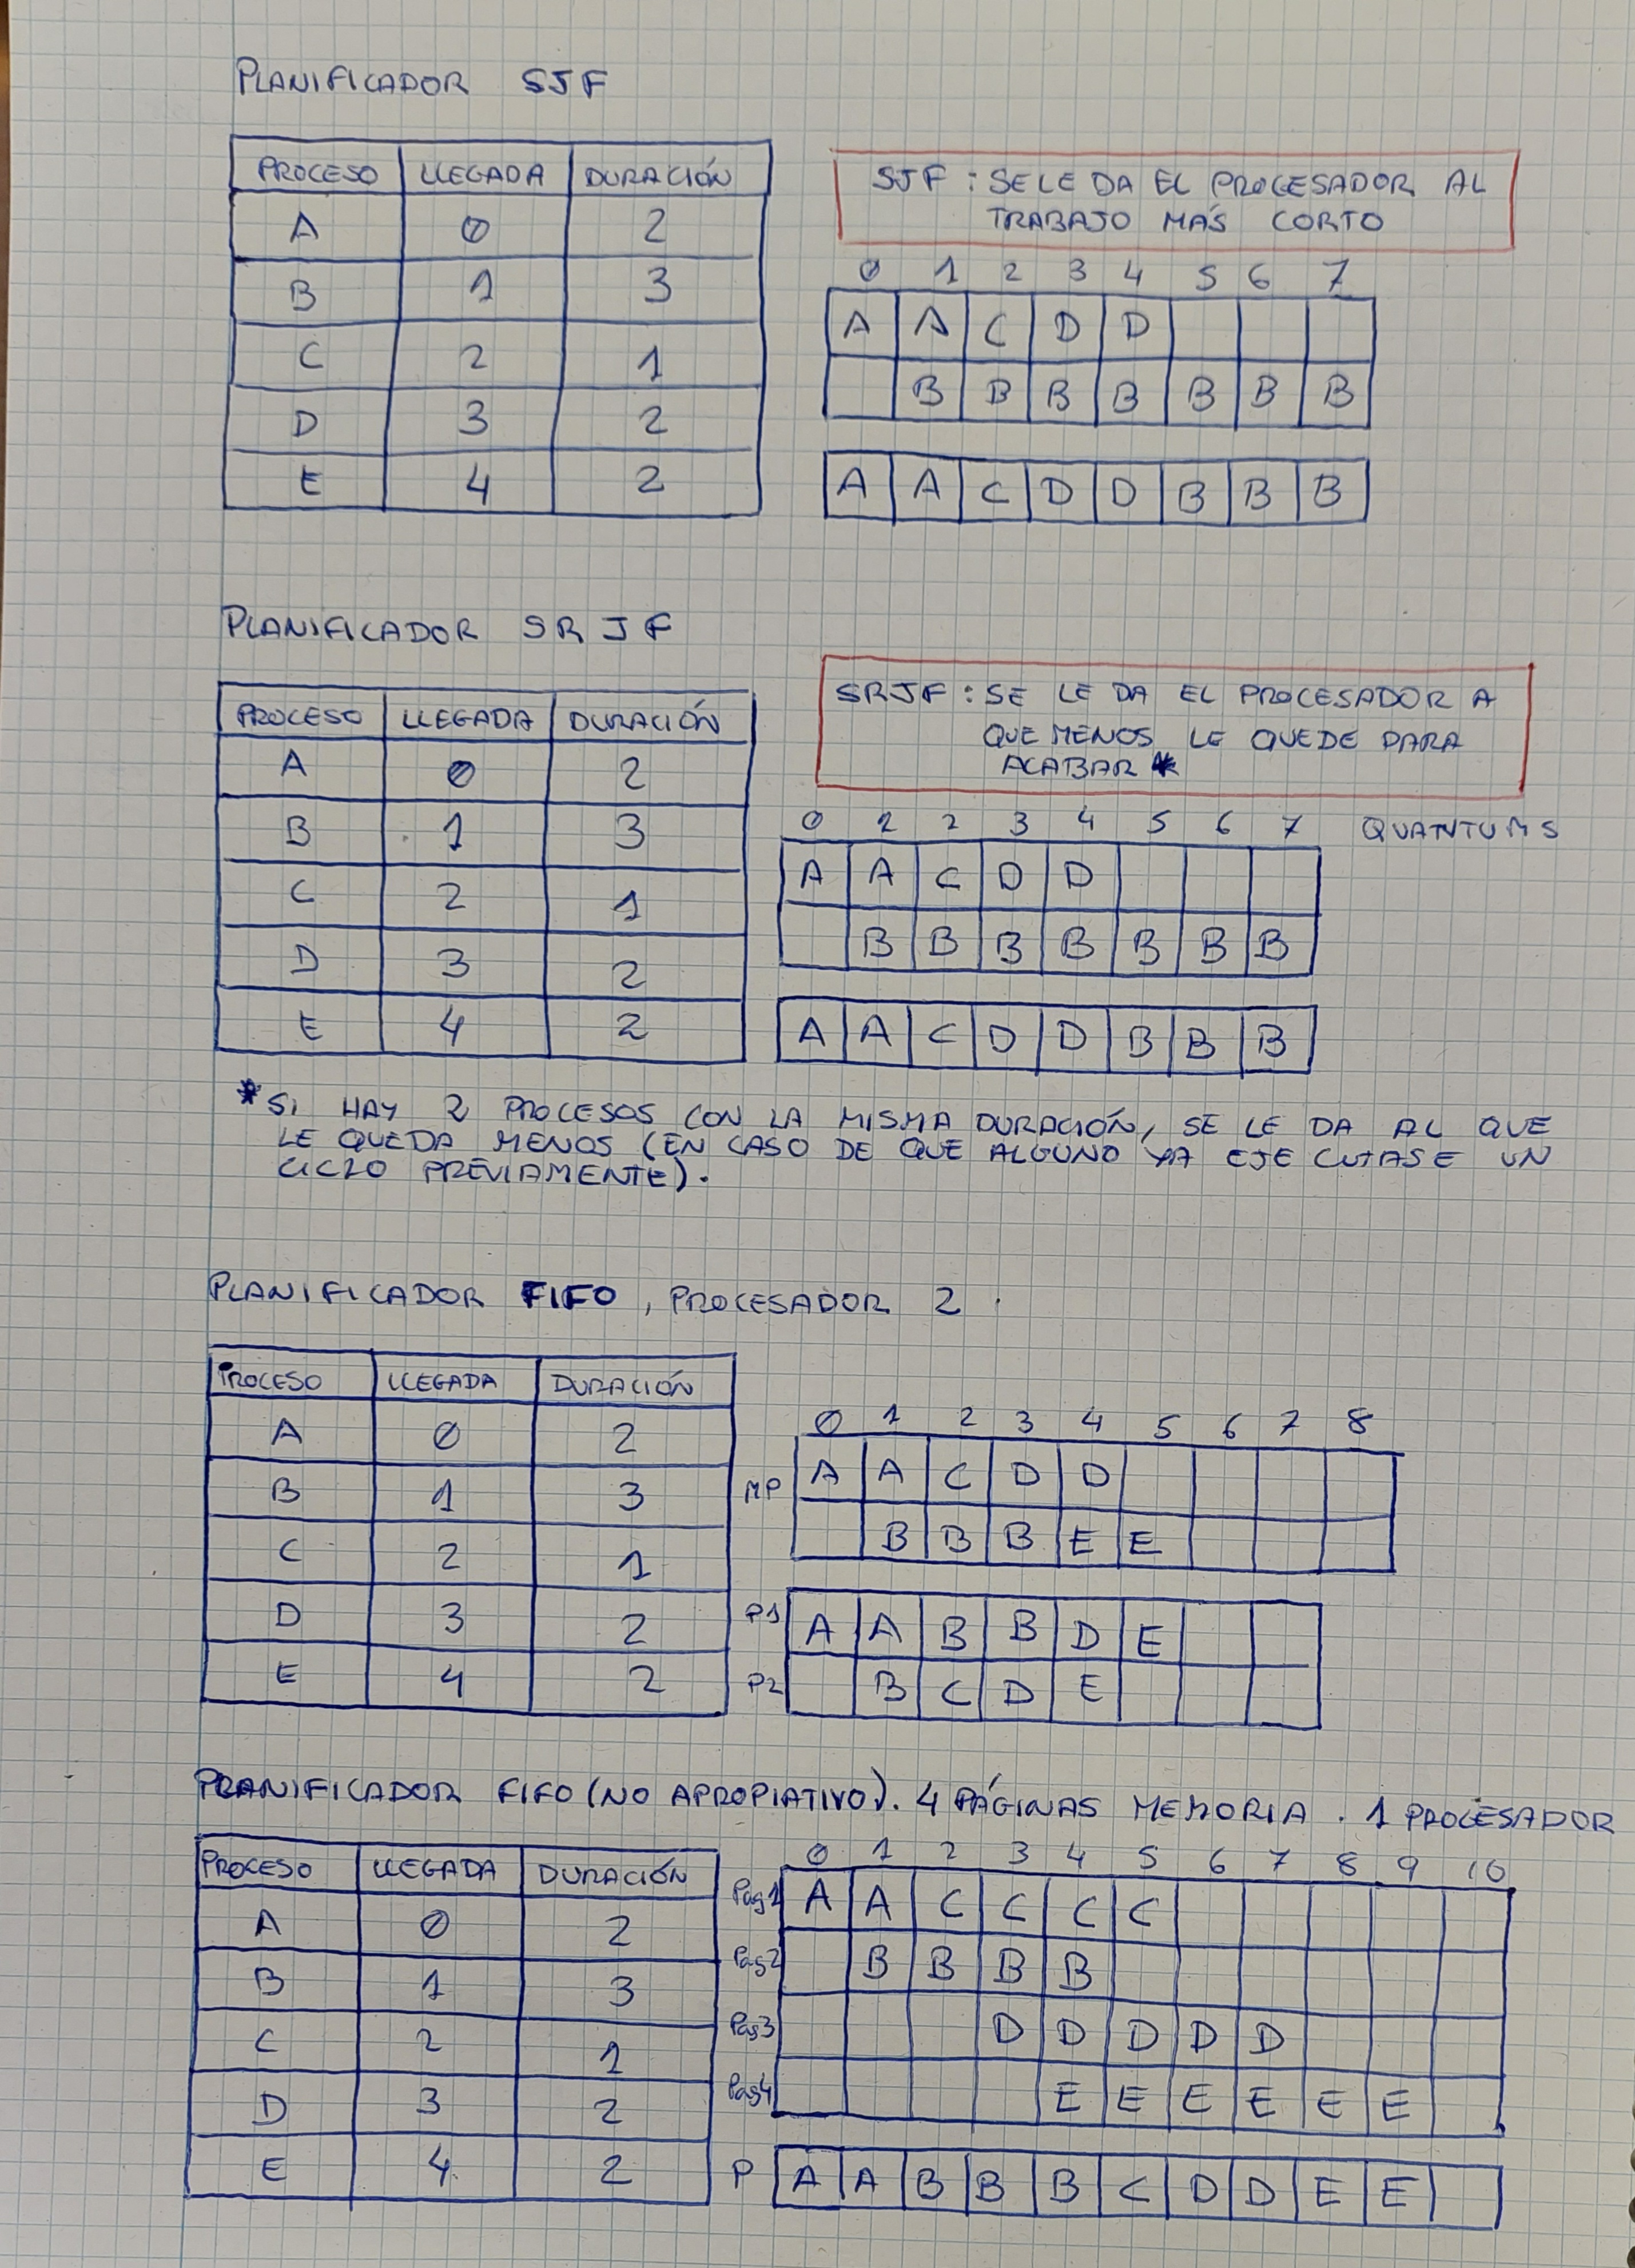 PLANIFICADOR SJF
PROCESO LLEGADA DURACIÓN
A 0 2
B 1 3
C 2 1
D 3 2
E 4 2
SJF : SE LE DA EL PROCESADOR AL
TRABAJO MÁS CORTO
0 1 2 3 4 5 6 7
A A C D D
B B B B B B B
A A C D D B B B
PLANIFICADOR SRJF
PROCESO LLEGADA DURACIÓN
A 0 2
B 1 3
C 2 1
D 3 2
E 4 2
SRJF : SE LE DA EL PROCESADOR A
QUE MENOS LE QUEDE PARA
ACABAR *
0 1 2 3 4 5 6 7 QUANTUMS
A A C D D
B B B B B B B
A A C D D B B B
* SI HAY 2 PROCESOS CON LA MISMA DURACIÓN, SE LE DA AL QUE
LE QUEDA MENOS (EN CASO DE QUE ALGUNO YA EJECUTASE UN
CICLO PREVIAMENTE).
PLANIFICADOR FIFO, PROCESADOR 2.
PROCESO LLEGADA DURACIÓN
A 0 2
B 1 3
C 2 1
D 3 2
E 4 2
0 1 2 3 4 5 6 7 8
MP A A C D D
B B B E E
P1 A A B B D E
P2 B C D E
PLANIFICADOR FIFO (NO APROPIATIVO). 4 PÁGINAS MEMORIA. 1 PROCESADOR
PROCESO LLEGADA DURACIÓN
A 0 2
B 1 3
C 2 1
D 3 2
E 4 2
0 1 2 3 4 5 6 7 8 9 10
Pág1 A A C C C C
Pág2 B B B B
Pág3 D D D D D
Pág4 E E E E E E
P A A B B B C D D E E